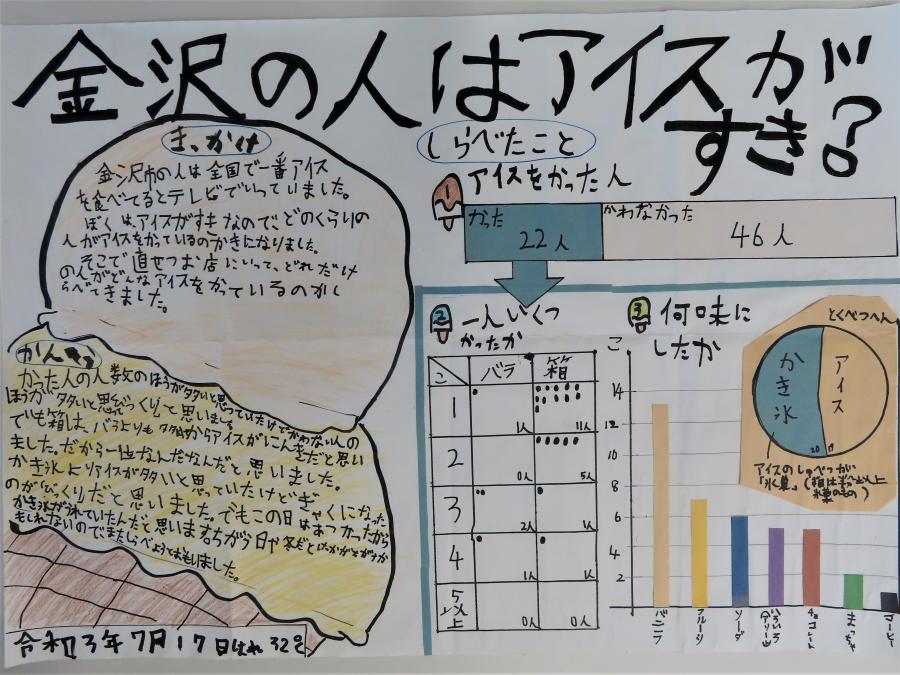 金沢の人はアイスが
すき?
きっかけ
金沢市の人は全国で一番アイス
を食べてるとテレビでいっていました。
ぼくは、アイスがすキなので、どのくらいの
人がアイスをかっているのかきになりました。
そこで直せつお店にいって、どれだけ
の人がどんなアイスをかっているのかし
らべてきました。
かんそう
かった人の人数のほうがタタいと思っていたけどかわない人の
ほうがタタいと思ってびっくりと思いました。
でも箱は、バラよりもタタかったからアイスがにんきだと思い
ました。だから一位なんだなんだと思いました。
かき氷よりアイスがタタいと思っていたけどぎ
ゃくになった
のが「びっくり」だと思いました。でもこの日はあつかったから
かき氷がうれていたんだと思いますちがう日や
もしれないのでまたしらべようとおもいました。
令和3年7月17日はれ32℃
しらべたこと
1 アイスをかった人
かった 22人
かわなかった 46人
2 一人いくつ
かったか
こ バラ 箱
1 1人 11人
2 0人 5人
3 2人 1人
4 1人 1人
5以上 0人 0人
3 何味に
したか
こ
14
12
10
8
6
4
2
バニラ
フルーツ
ソーダ
いろいろ
チョコレート
まっちゃ
コーヒー
とくべつへん
かき氷
アイス
20
アイスのしゅるいが